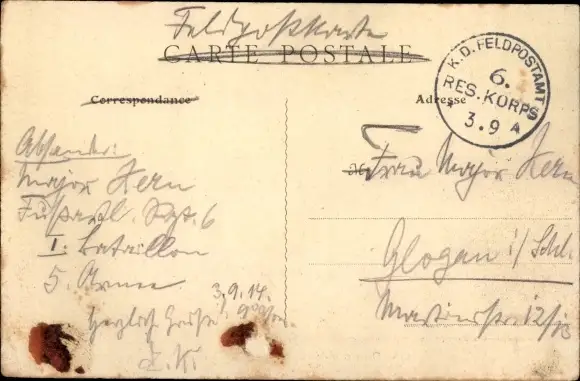 Feldpostkarte
CARTE POSTALE
K.D. FELDPOSTAMT
6.
RES. KORPS
3.9 A
Correspondance
Adresse
Absender:
Major Hern
Fußartl. Rgt. 6
I. Bataillon
5. Armee
3.9.14.
Herzlich Grüße
Frau Major Hern
Glogau i/Schl.